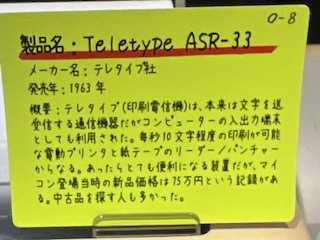 O-8
製品名：Teletype ASR-33
メーカー名：テレタイプ社
発売年：1963年
概要：テレタイプ(印刷電信機)は、本来は文字を送
受信する通信機器だがコンピューターの入出力端末
としても利用された。毎秒10文字程度の印刷が可能
な電動プリンタと紙テープのリーダー/パンチャー
からなる。あったらとても便利になる装置だが、マイ
コン登場当時の新品価格は75万円という記録があ
る。中古品を探す人も多かった。